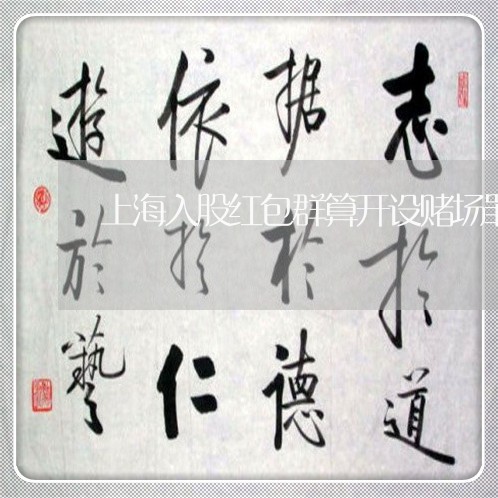 志於道
据於德
依於仁
遊於藝
上海入股红包群算开设赌场